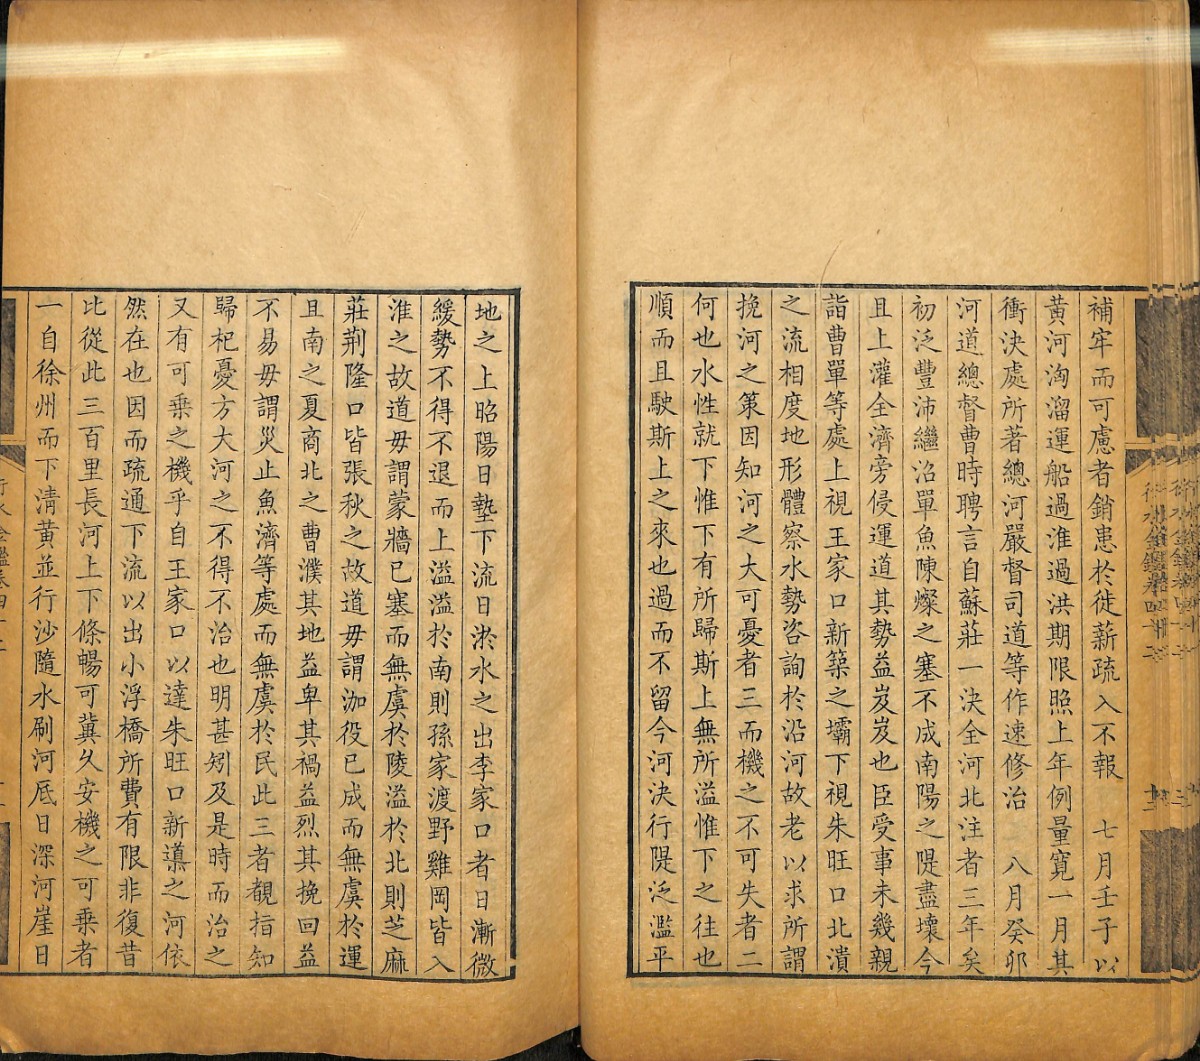 補牢而可慮者銷患於徙薪疏入不報　七月壬子以
黃河淘溜運船過淮過洪期限照上年例量寬一月其
衝決處所著總河嚴督司道等作速修治　八月癸卯
河道總督曹時聘言自蘇莊一決全河北注者三年矣
初泛豐沛繼沼單魚陳燦之塞不成南陽之隄盡壞今
且上灌全濟旁侵運道其勢益岌岌也臣受事未幾親
詣曹單等處上視王家口新築之壩下視朱旺口北潰
之流相度地形體察水勢咨詢於沿河故老以求所謂
挽河之策因知河之大可憂者三而機之不可失者二
何也水性就下惟下有所歸斯上無所溢惟下之往也
順而且駛斯上之來也過而不留今河決行隄泛濫平
地之上昭陽日墊下流日淤水之出李家口者日漸微
緩勢不得不退而上溢溢於南則孫家渡野雞岡皆入
淮之故道毋謂蒙牆已塞而無虞於陵溢於北則芝麻
莊荆隆口皆張秋之故道毋謂泇役已成而無虞於運
且南之夏商北之曹濮其地益卑其禍益烈其挽回益
不易毋謂災止魚濟等處而無虞於民此三者觀指知
歸杞憂方大河之不得不治也明甚矧及是時而治之
又有可乗之機乎自王家口以達朱旺口新導之河依
然在也因而疏通下流以出小浮橋所費有限非復昔
比從此三百里長河上下條暢可冀久安機之可乗者
一自徐州而下清黃並行沙隨水刷河底日深河崖日
行水金鑑卷四十二